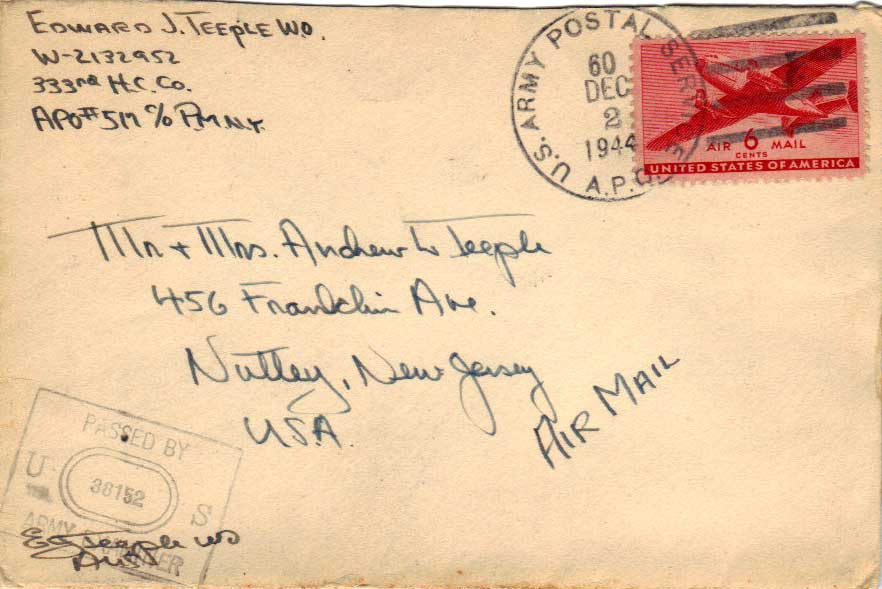 EDWARD J. TEEPLE W.O.
W-2132952
333rd H.C. Co.
APO# 517 c/o P.M. N.Y.
U.S. ARMY POSTAL SERVICE
60
DEC
2
1944
A.P.O.
AIR 6 MAIL
CENTS
UNITED STATES OF AMERICA
Mr. + Mrs. Andrew W. Teeple
456 Franklin Ave.
Nutley, New Jersey
U.S.A.
AIR MAIL
PASSED BY
U 38152 S
ARMY EXAMINER
E J Teeple WO
AUS